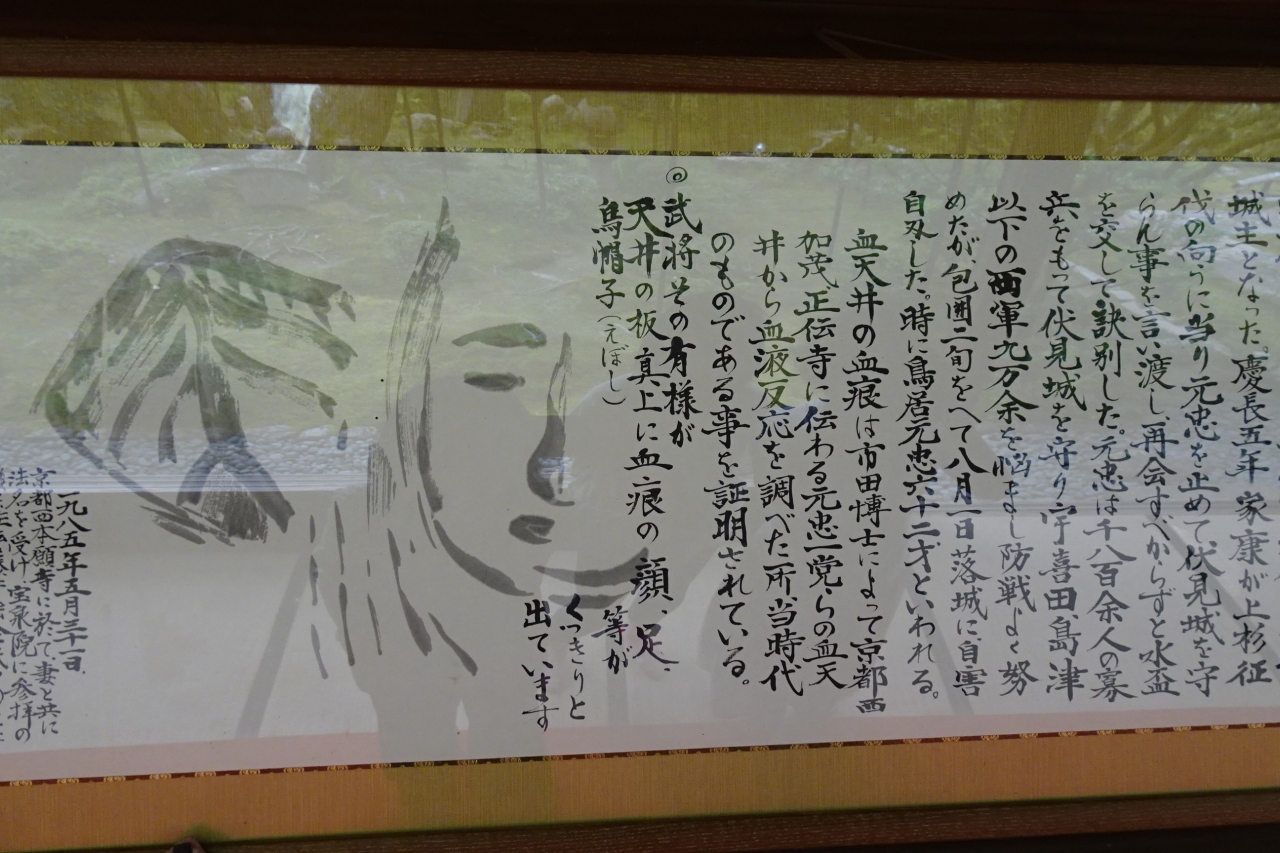 城主となった。慶長五年 家康が上杉征
伐の向うに当り元忠を止めて、伏見城を守
らん事を言い渡し、再会すべからずと水盃
を交して訣別した。元忠は千八百余人の寡
兵をもって伏見城を守り宇喜田、島津
以下の西軍九万余を悩まし防戦よく努
めたが、包囲二旬をへて八月一日落城に自害
自刃した。時に鳥居元忠六十二才といわれる。
血天井の血痕は市田博士によって京都西
加茂正伝寺に伝わる元忠一党らの血天
井から血液反応を調べた所当時代
のものである事を証明されている。
◎武将その有様が
天井の板真上に血痕の顔、足、
烏帽子(えぼし)等が
くっきりと
出ています
一九八五年五月三十一日、
京都西本願寺に於て妻と共に
法名を受け宝泉院に参拝の